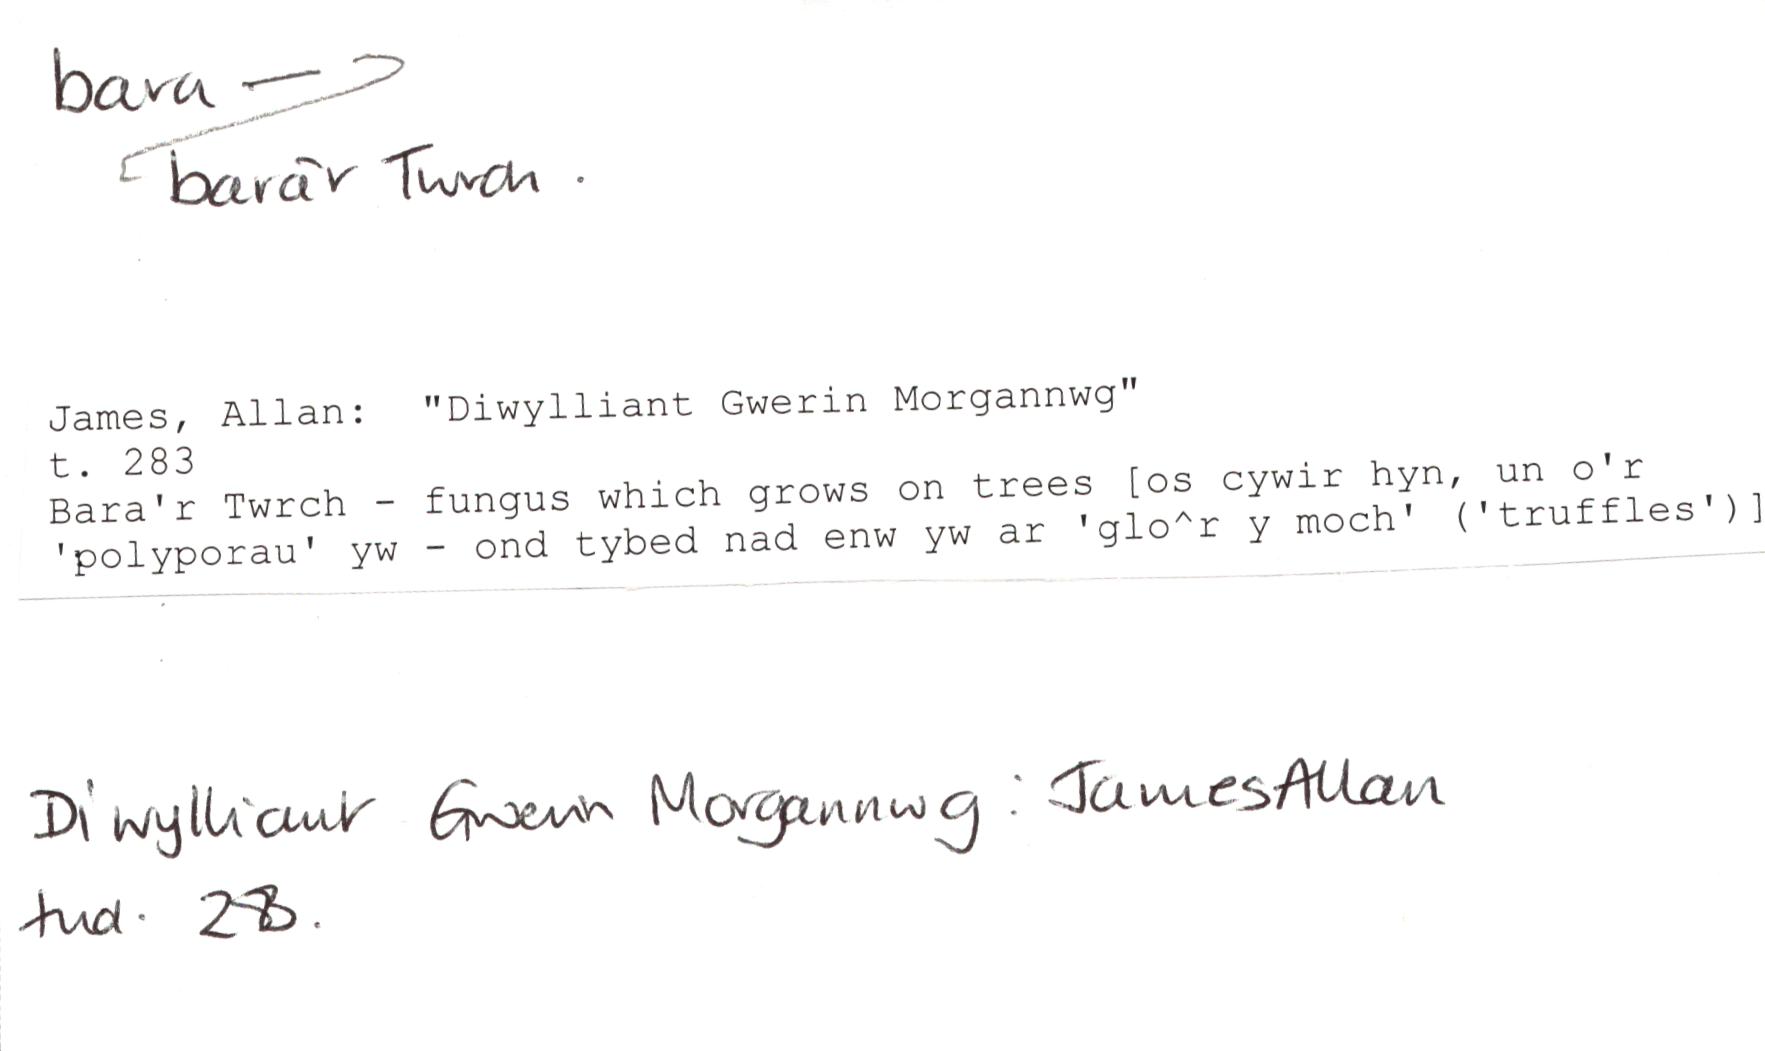 bara →
bara'r Twrch.
James, Allan: "Diwylliant Gwerin Morgannwg"
t. 283
Bara'r Twrch - fungus which grows on trees [os cywir hyn, un o'r
'polyporau' yw - ond tybed nad enw yw ar 'glo^r y moch' ('truffles')]
Diwylliant Gwerin Morgannwg: James Allan
tud.